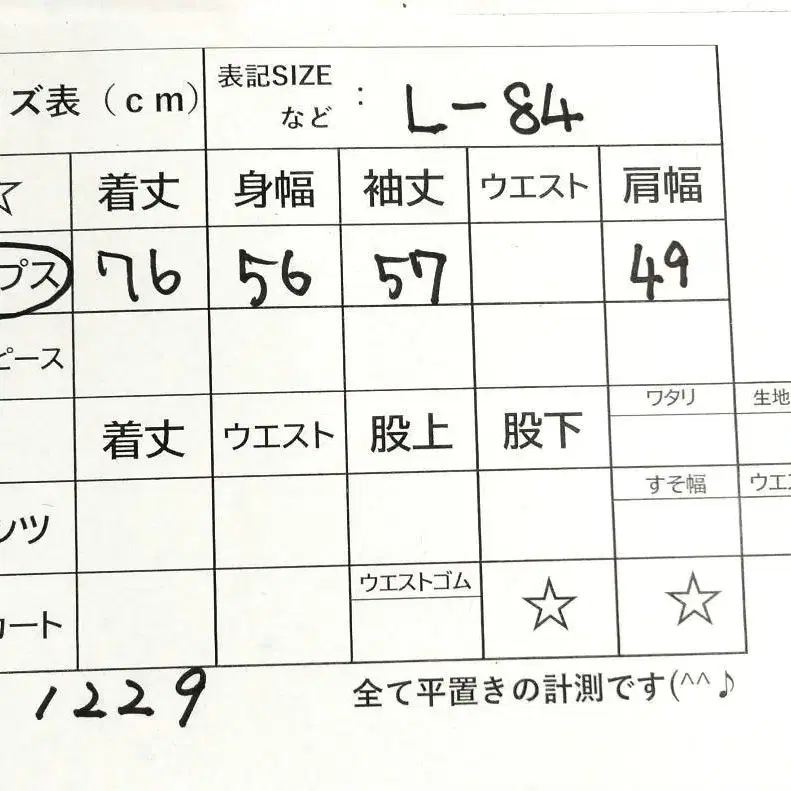 ズ表（cm） 表記SIZE など : L-84
☆ 着丈 身幅 袖丈 ウエスト 肩幅
プス 76 56 57 49
ピース
着丈 ウエスト 股上 股下 ワタリ 生地
ンツ すそ幅 ウエ
カート ウエストゴム ☆ ☆
1229 全て平置きの計測です(^^♪